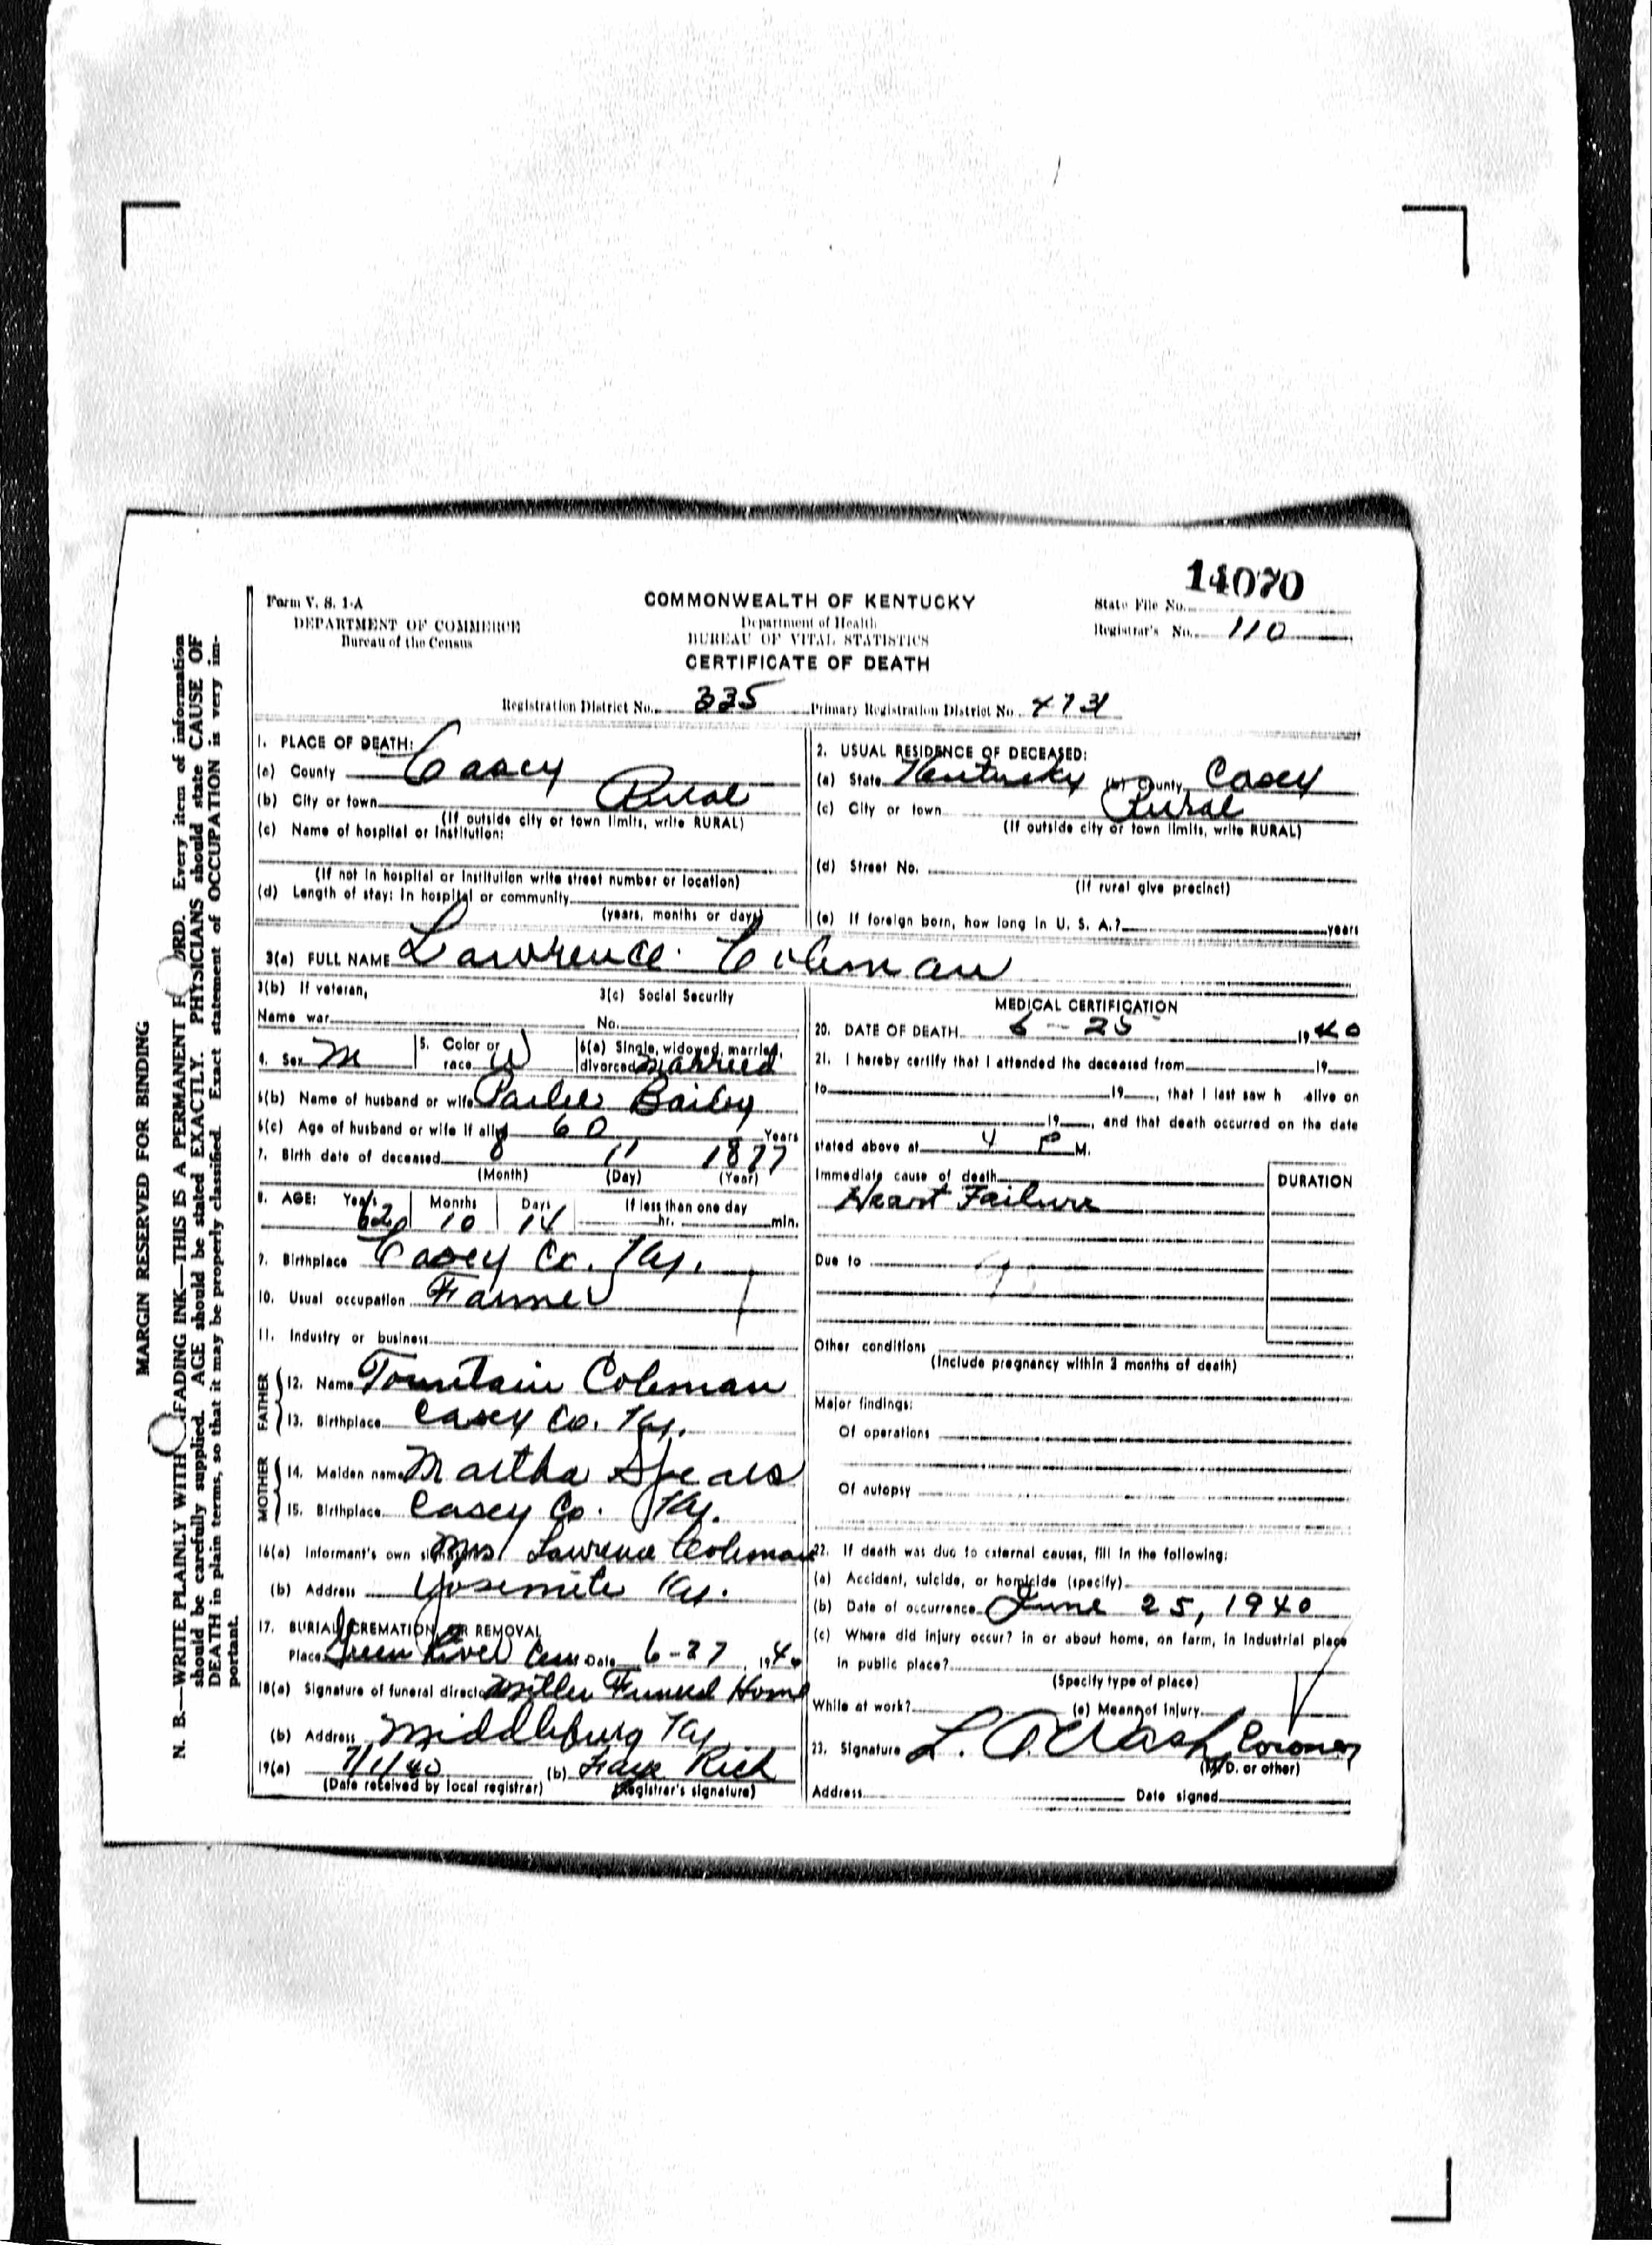 14070
Form V. S. 1-A
DEPARTMENT OF COMMERCE
Bureau of the Census
COMMONWEALTH OF KENTUCKY
Department of Health
BUREAU OF VITAL STATISTICS
CERTIFICATE OF DEATH
State File No.
Registrar's No. 110
Registration District No. 335 Primary Registration District No. 4731
MARGIN RESERVED FOR BINDING
N. B.—WRITE PLAINLY WITH UNFADING INK—THIS IS A PERMANENT RECORD. Every item of information
should be carefully supplied. AGE should be stated EXACTLY. PHYSICIANS should state CAUSE OF
DEATH in plain terms, so that it may be properly classified. Exact statement of OCCUPATION is very im-
portant.
1. PLACE OF DEATH:
(a) County Casey
(b) City or town Rural
(If outside city or town limits, write RURAL)
(c) Name of hospital or Institution:
(If not in hospital or Institution write street number or location)
(d) Length of stay: In hospital or community
(years, months or days)
2. USUAL RESIDENCE OF DECEASED:
(a) State Kentucky (b) County Casey
(c) City or town Rural
(If outside city or town limits, write RURAL)
(d) Street No.
(If rural give precinct)
(e) If foreign born, how long in U. S. A.? years
3(a) FULL NAME Lawrence Coleman
3(b) If veteran, 3(c) Social Security
Name war No.
4. Sex M 5. Color or race W 6(a) Single, widowed, married, divorced Married
6(b) Name of husband or wife Parlee Bailey
6(c) Age of husband or wife if alive 60 Years
7. Birth date of deceased 8 11 1877
(Month) (Day) (Year)
8. AGE: Years Months Days If less than one day
62 10 14 hr. min.
9. Birthplace Casey Co. Ky.
10. Usual occupation Farmer
11. Industry or business
FATHER
12. Name Fountain Coleman
13. Birthplace Casey Co. Ky.
MOTHER
14. Maiden name Martha Spears
15. Birthplace Casey Co. Ky.
16(a) Informant's own signature Mrs Lawrence Coleman
(b) Address Yosemite Ky.
17. BURIAL, CREMATION, OR REMOVAL
Place Green River Cem Date 6-27, 1940
18(a) Signature of funeral director Miller Funeral Home
(b) Address Middleburg Ky
19(a) 7/1/40 (b) Faye Rich
(Date received by local registrar) (Registrar's signature)
MEDICAL CERTIFICATION
20. DATE OF DEATH 6-25 1940
21. I hereby certify that I attended the deceased from 19
to 19, that I last saw h alive on
19, and that death occurred on the date
stated above at 4 P M.
Immediate cause of death
Heart Failure
DURATION
Due to
Other conditions
(Include pregnancy within 3 months of death)
Major findings:
Of operations
Of autopsy
22. If death was due to external causes, fill in the following:
(a) Accident, suicide, or homicide (specify)
(b) Date of occurrence June 25, 1940
(c) Where did injury occur? in or about home, on farm, in industrial place
in public place?
(Specify type of place)
While at work? (e) Means of Injury
23. Signature L. Coroner
(M. D. or other)
Address Date signed